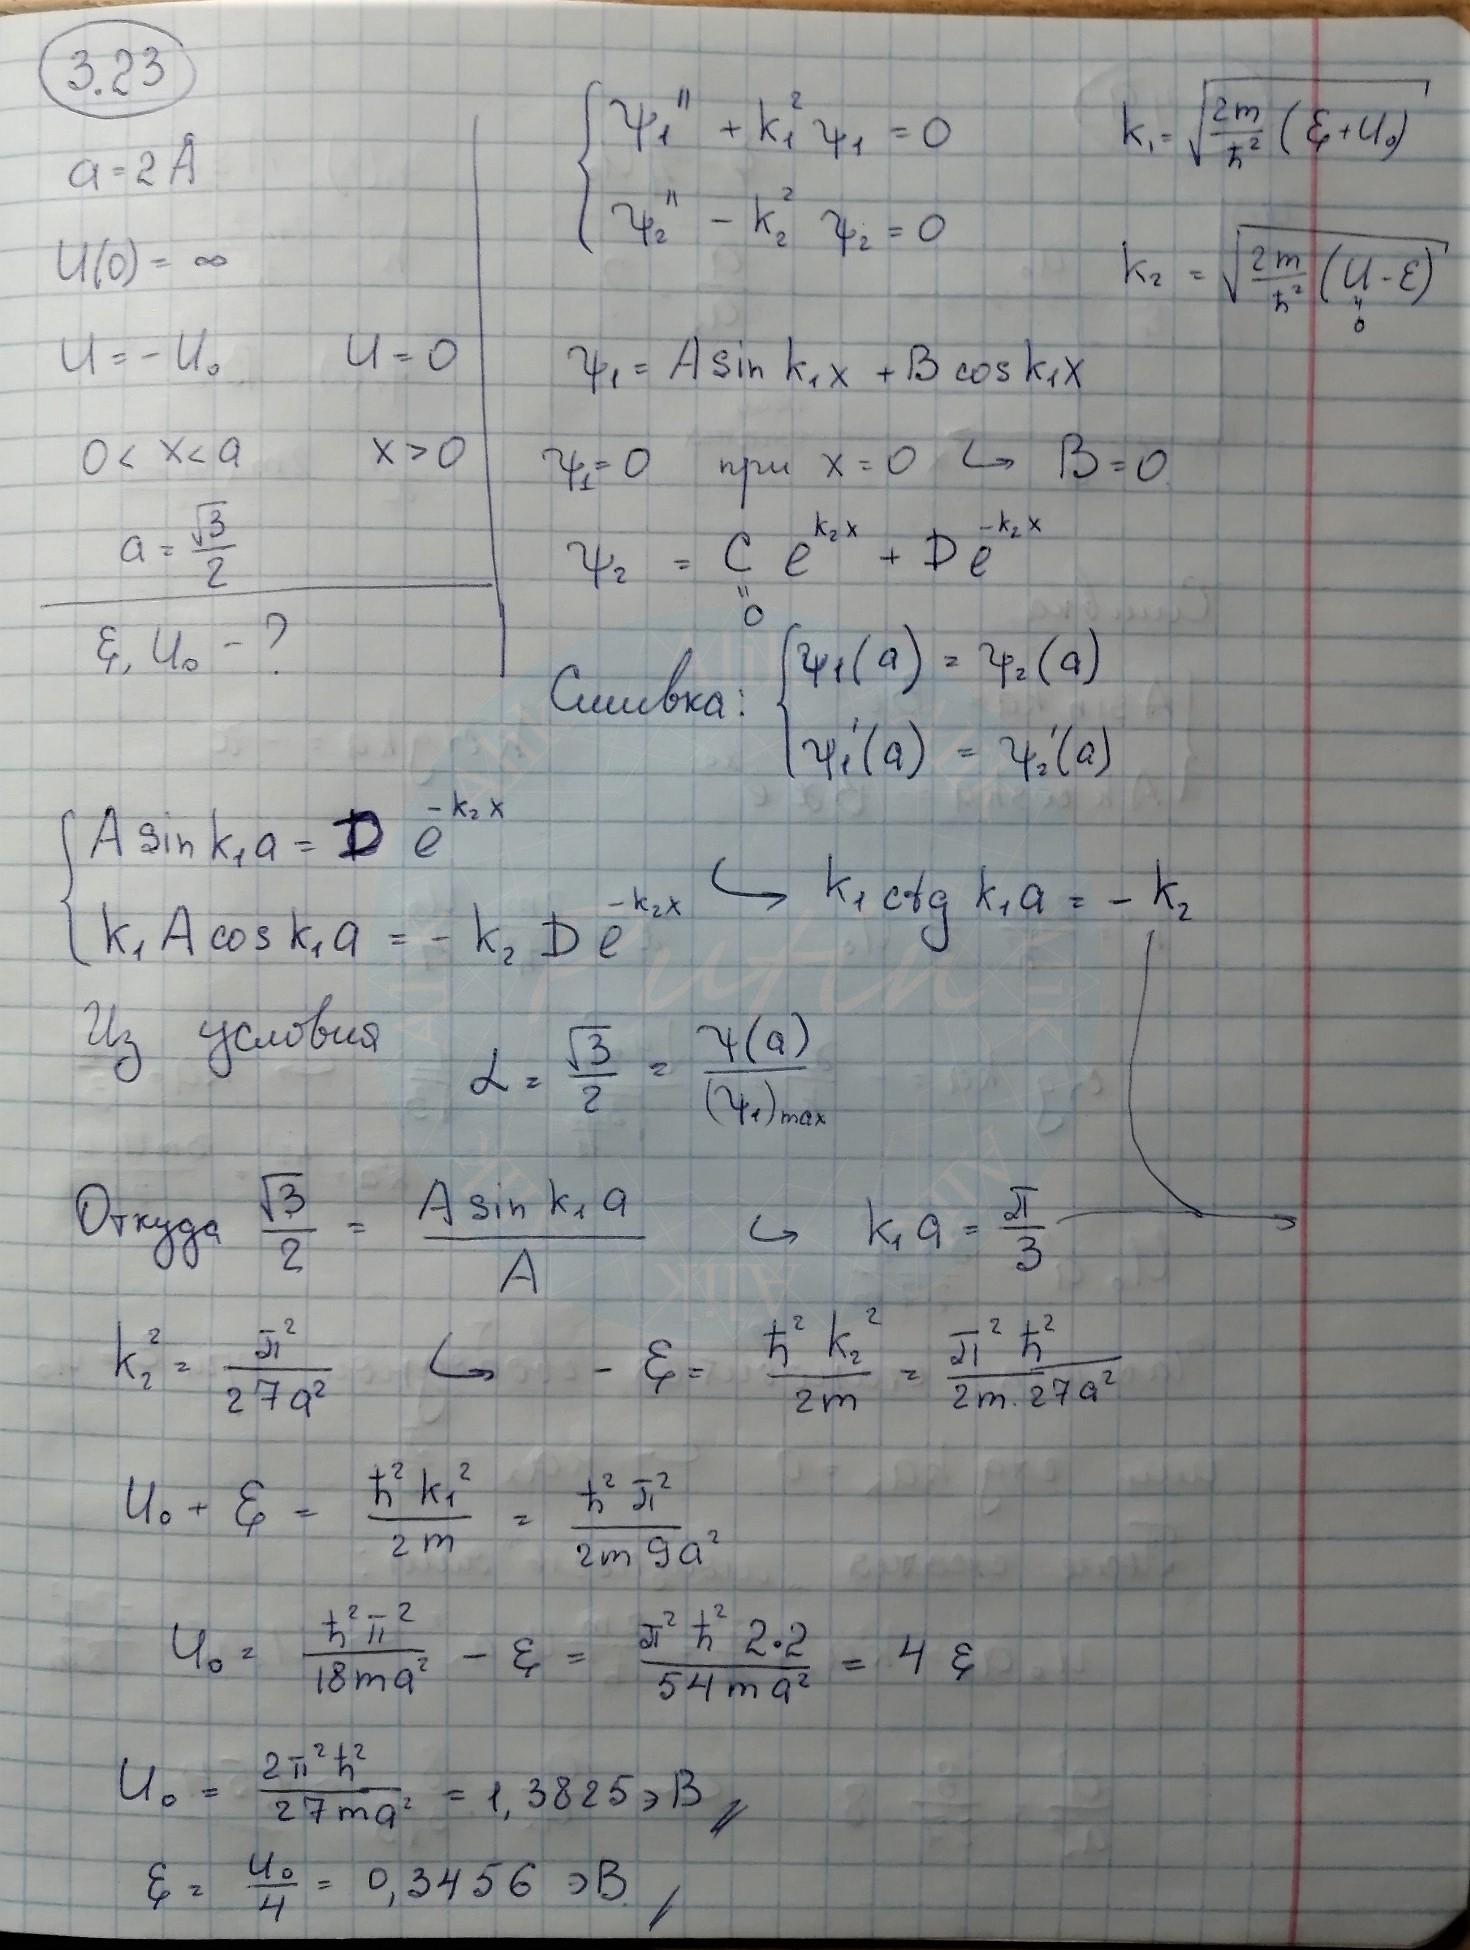 3.23
a = 2 Å
U(0) = ∞
U = -U₀ U = 0
0 < x < a x > 0
a = √3/2
ε, U₀ - ?
{ ψ₁'' + k₁² ψ₁ = 0
ψ₂'' - k₂² ψ₂ = 0
k₁ = √(2m/ħ² (ε + U₀))
k₂ = √(2m/ħ² (U - ε))
" 0
ψ₁ = A sin k₁x + B cos k₁x
ψ₁ = 0 при x = 0 ↪ B = 0
ψ₂ = C e^{k₂x} + D e^{-k₂x}
" 0
Сшивка: { ψ₁(a) = ψ₂(a)
ψ₁'(a) = ψ₂'(a)
{ A sin k₁a = D e^{-k₂x}
k₁ A cos k₁a = - k₂ D e^{-k₂x} ↪ k₁ ctg k₁a = - k₂
Из условия α = √3/2 = ψ(a)/(ψ₁)max
Откуда √3/2 = A sin k₁a / A ↪ k₁a = π/3 →
k₂² = π²/27a² ↪ - ε = ħ² k₂²/2m = π² ħ²/2m·27a²
U₀ + ε = ħ² k₁²/2m = ħ² π²/2m 9a²
U₀ = ħ²π²/18ma² - ε = π² ħ² 2·2/54 ma² = 4 ε
U₀ = 2π²ħ²/27ma² = 1,3825 эВ
ε = U₀/4 = 0,3456 эВ
Putin
АПК